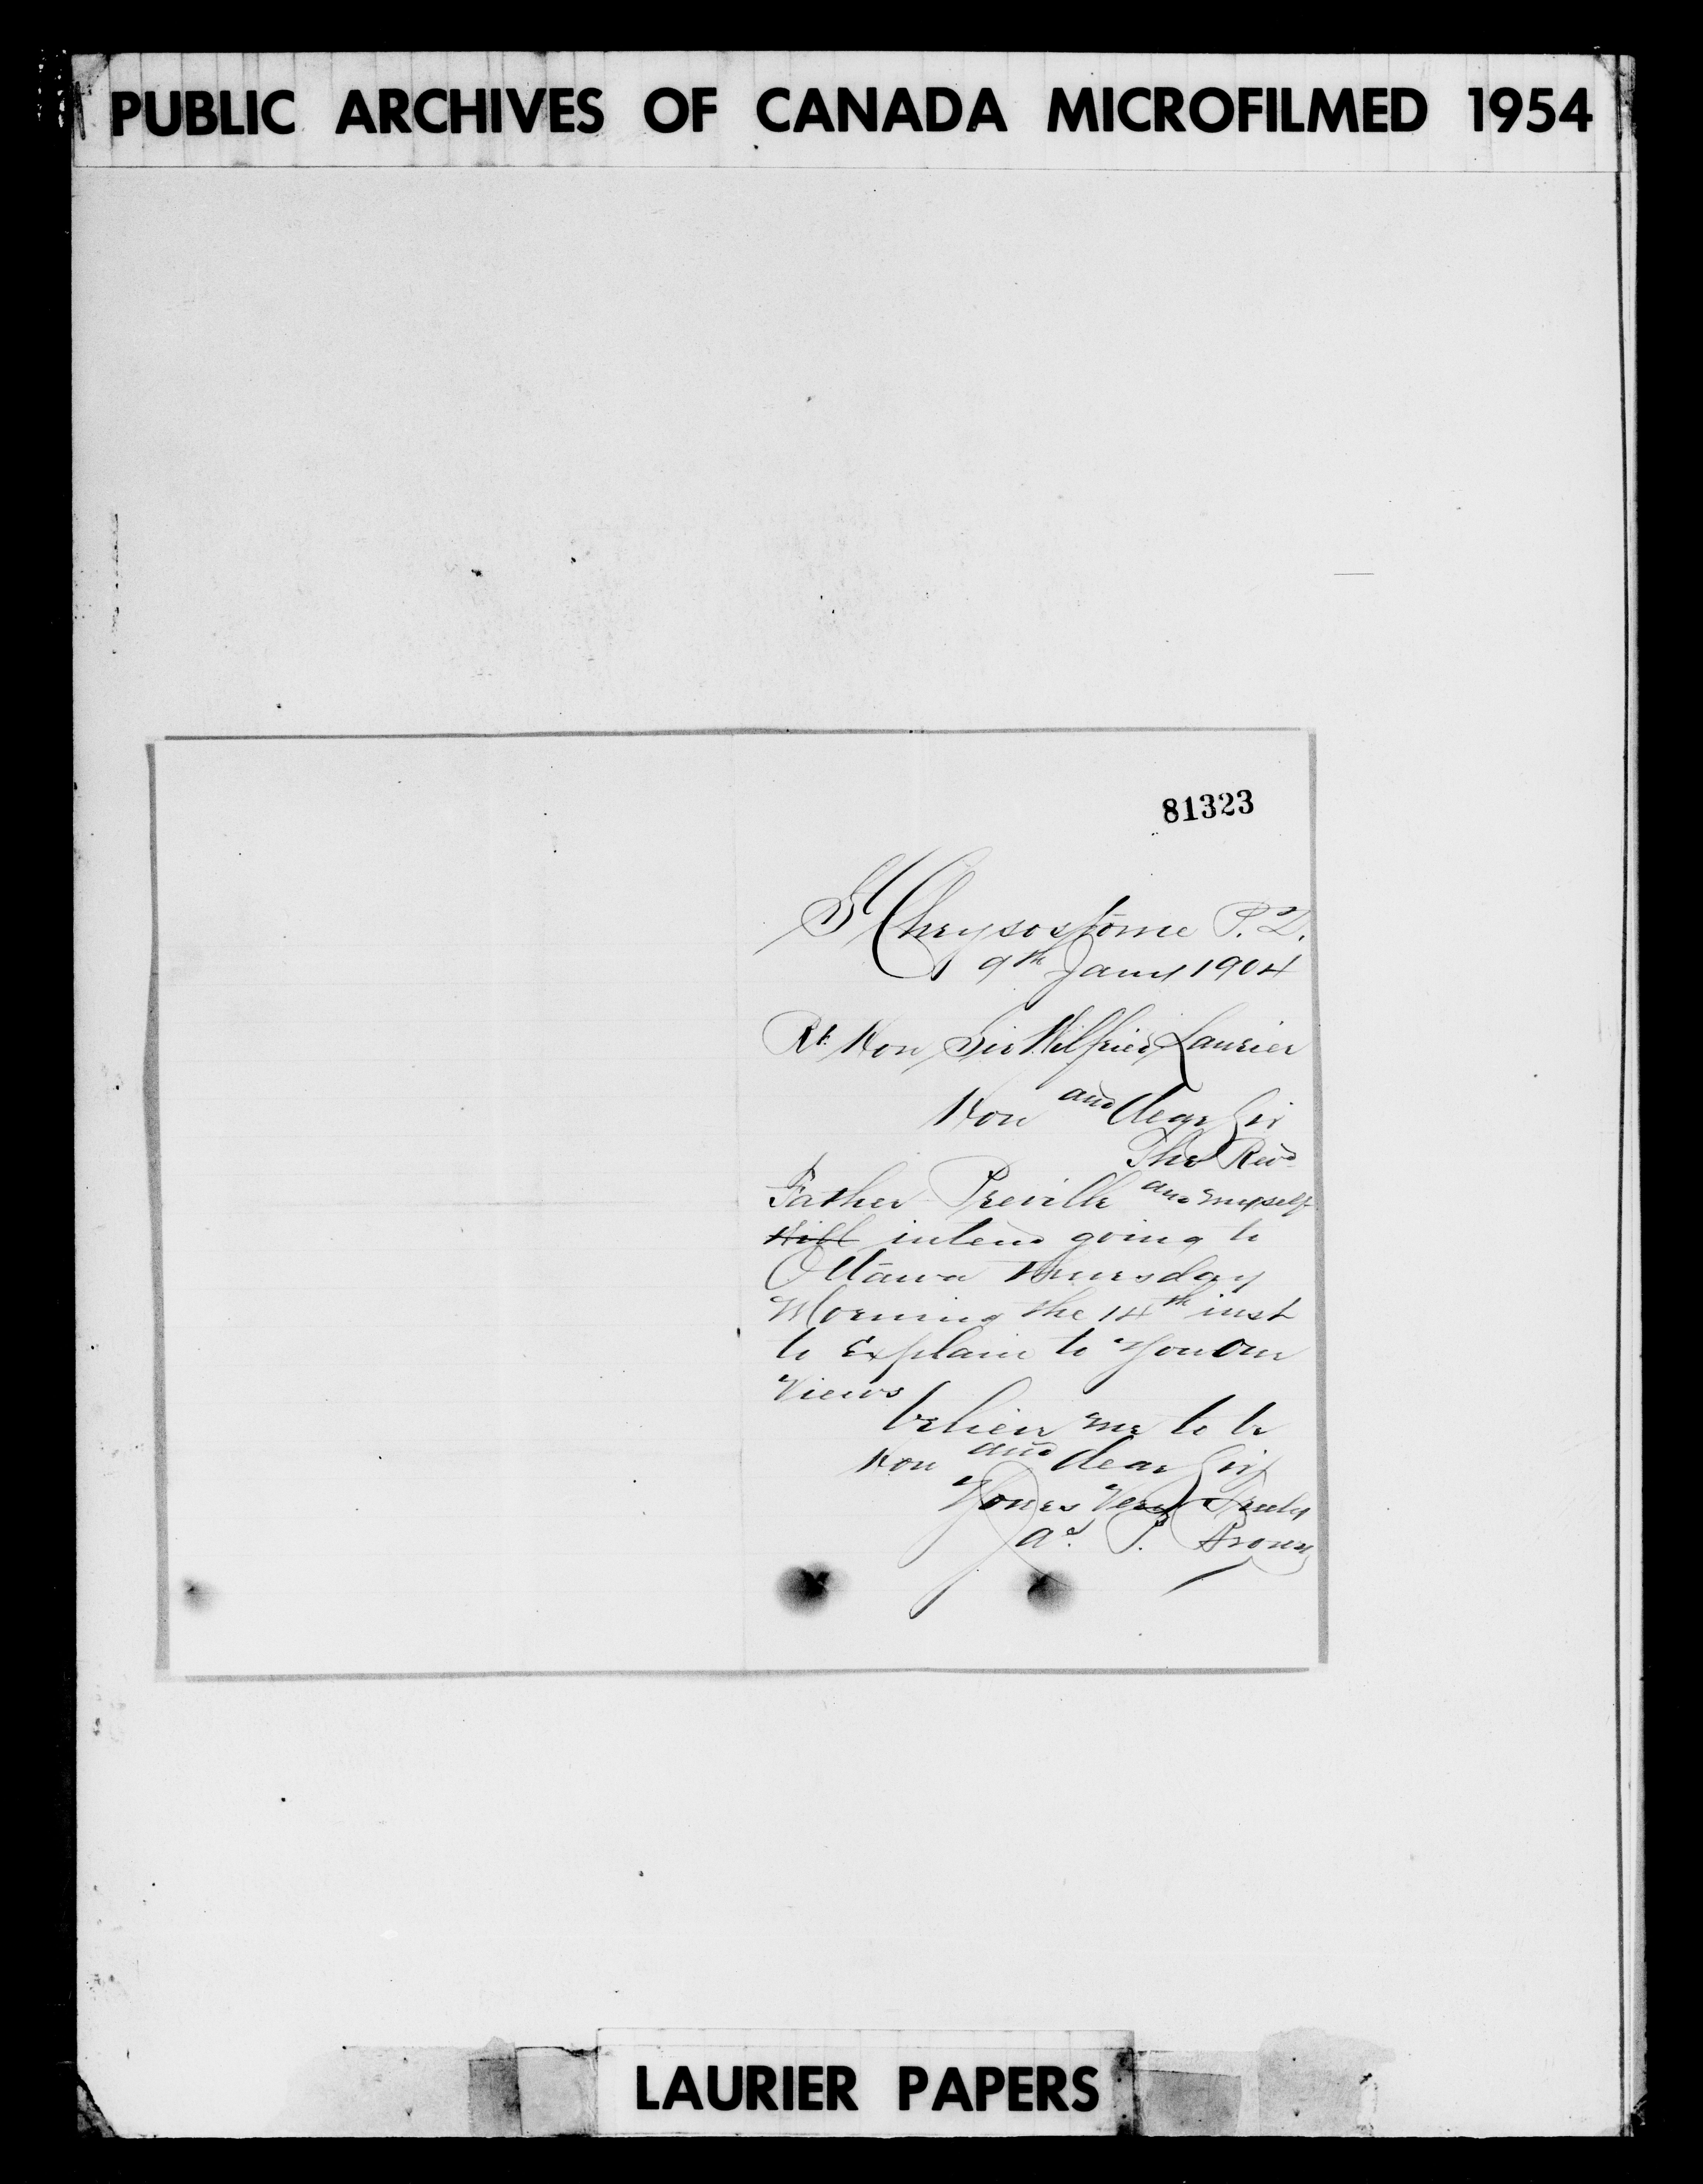 PUBLIC ARCHIVES OF CANADA MICROFILMED 1954
81323
St Chrysostome P.Q.
9th Jany 1904
Rt Hon Sir Wilfrid Laurier
Hon and dear Sir
The Revd
Father Preville and myself
will intend going to
Ottawa Thursday
Morning the 14th inst
to Explain to You our
Views
believe me to be
Hon and dear Sir
Yours Very Truly
Jas. P. Brown
LAURIER PAPERS